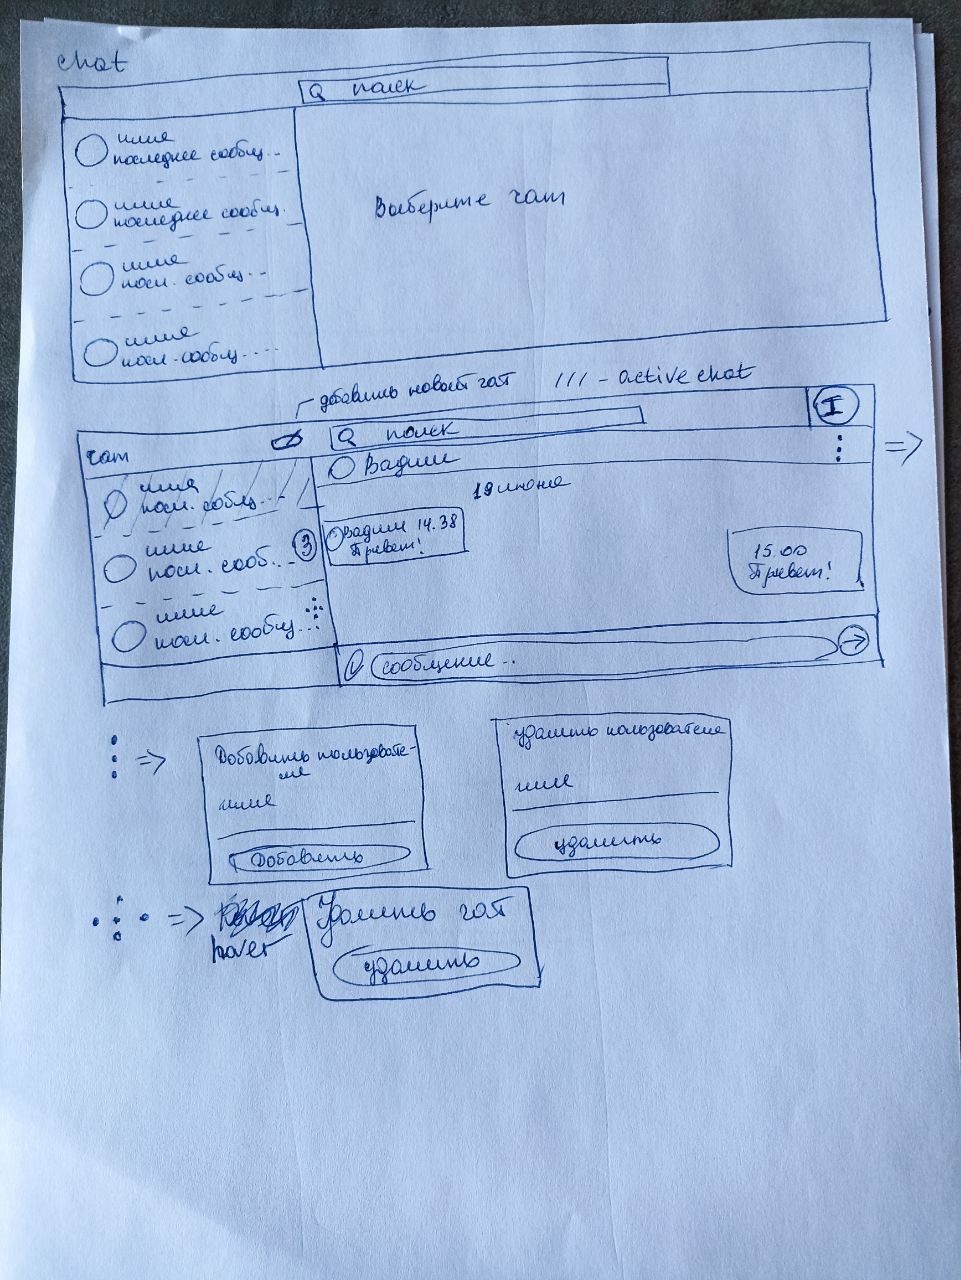 chat
поиск
имя
последнее сообщ...
имя
последнее сообщ.
имя
посл. сообщ...
имя
посл. сообщ....
Выберите чат
добавить новый чат
/// - active chat
чат
поиск
I
Вадим
19 июня
имя
посл. сообщ...
имя
посл. сооб...
3
имя
посл. сообщ...
Вадим 14.38
Привет!
15.00
Привет!
сообщение..
Добавить пользовате-
ля
имя
Добавить
удалить пользователя
имя
удалить
hover
Удалить чат
удалить